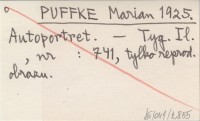 PUFFKE Marian 1925.
Autoportret. — Tyg. Il.
, nr : 741, tylko reprod.
obrazu.